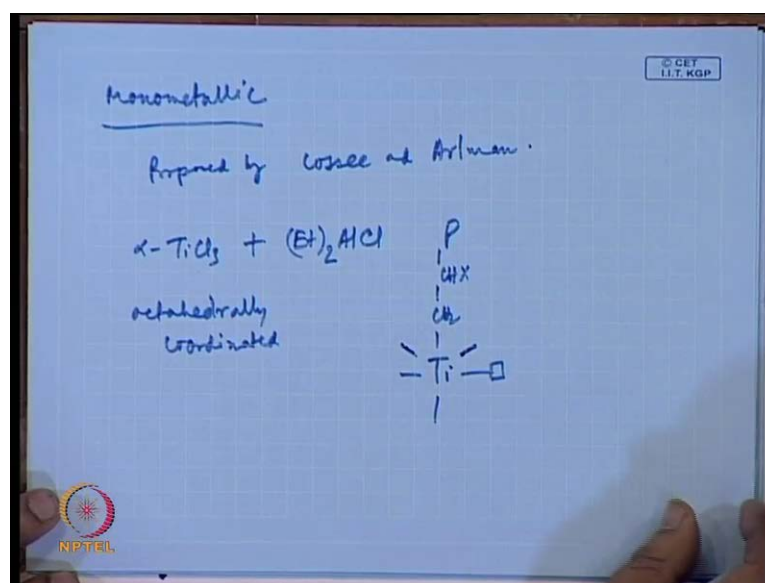 © CET
I.I.T. KGP
Monometallic
Proposed by Cossee and Arlman.
α-TiCl3 + (Et)2AlCl
octahedrally
coordinated
P
CHX
CH2
Ti
NPTEL